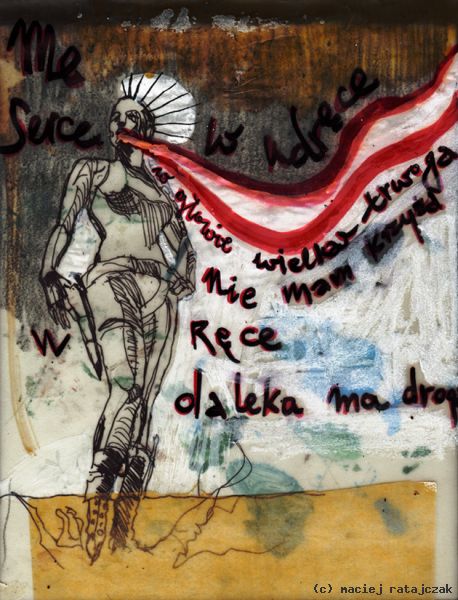 Me
Serce w udręce
w głowie wielka trwoga
nie mam krzyża
w Ręce
daleka ma drog
(c) maciej ratajczak